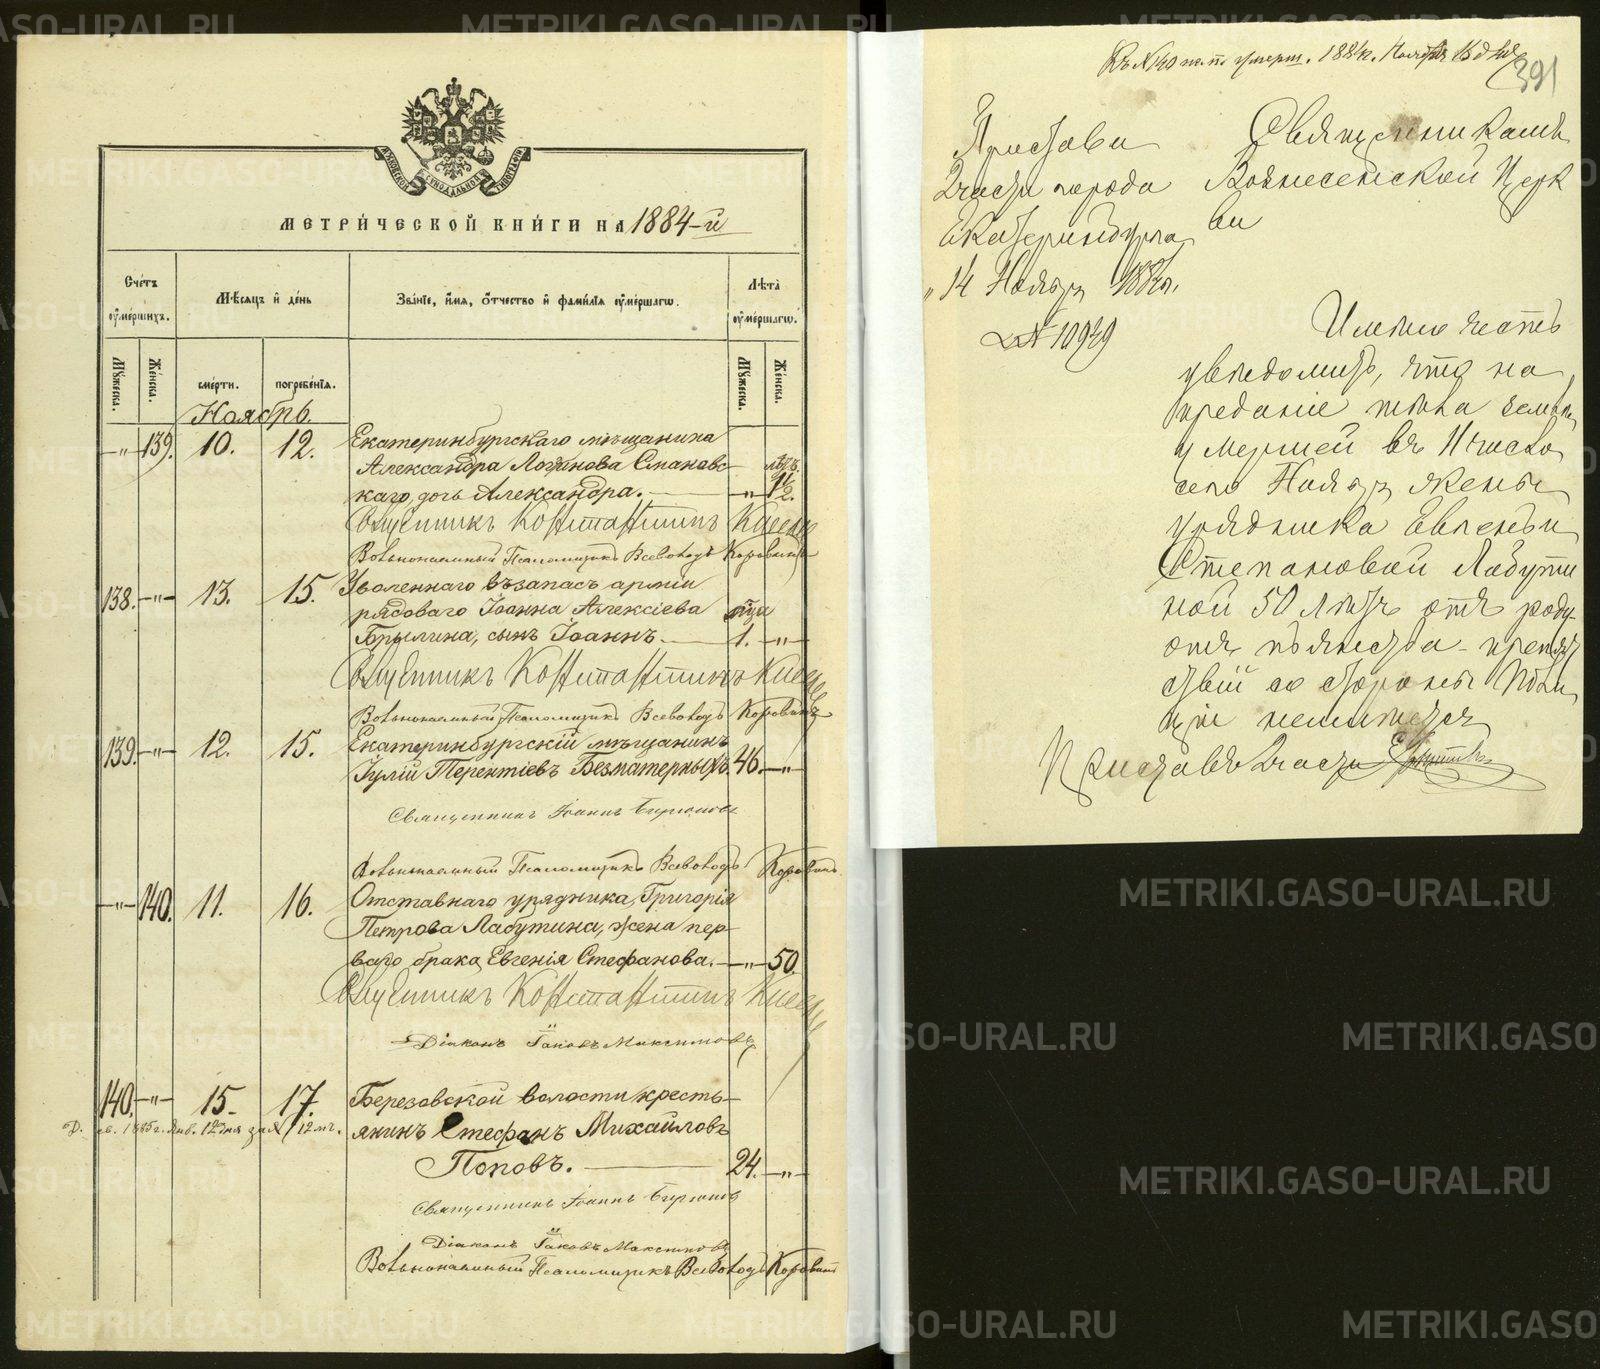 МОСКОВСКОЙ СѴНОДАЛЬНОЙ ТИПОГРАФІИ
МЕТРИ́ЧЕСКОЙ КНИ́ГИ НА 1884-й
Сче́тъ ѹ҆ме́ршихъ.
Мѣ́сяцъ и҆ де́нь
Зва́нїе, и҆́мѧ, ѻ҆́тчество и҆ фами́лїѧ ѹ҆ме́ршагѡ.
Лѣ́та ѹ҆ме́ршагѡ.
Мꙋ́жеска.
Же́нска.
сме́рти.
погребе́нїѧ.
Мꙋ́жеска.
Же́нска.
Ноябрь.
-"- 139. 10. 12. Екатеринбургскаго мѣщанина
Александра Логинова Смаковс-
каго, дочь Александра. -"- 1/2.
Священникъ Константинъ
Вольнонаемный Псаломщикъ Всеволодъ Коровинъ
138. -"- 13. 15. Уволеннаго въ запасъ арміи
рядоваго Іоанна Алексіева
Брылина, сынъ Іоаннъ. 1. -"-
Священникъ Константинъ
Вольнонаемный Псаломщикъ Всеволодъ Коровинъ
139. -"- 12. 15. Екатеринбургскій мѣщанинъ
Іулій Терентіевъ Безматерныхъ. 46. -"-
Священникъ Іоаннъ
Вольнонаемный Псаломщикъ Всеволодъ Коровинъ
-"- 140. 11. 16. Отставнаго урядника Григорія
Петрова Лабутина, жена пер-
ваго брака, Евгенія Стефанова. -"- 50.
Священникъ Константинъ
Діаконъ Іаковъ Максимовъ
140. -"- 15. 17. Березовской волости кресть-
янинъ Стефанъ Михайловъ
Поповъ. 24. -"-
Священникъ Іоаннъ
Діаконъ Іаковъ Максимовъ
Вольнонаемный Псаломщикъ Всеволодъ Коровинъ
Къ № 140 умерш. 1884 г. Ноября 15 дня
391
Пристава
2 части города
Екатеринбурга
"14 Ноября 1884 г.
№ 10949
Священникамъ
Вознесенской Церк
ви
Имѣю честь
увѣдомить, что на
преданіе тѣла землѣ
умершей въ 11 число
сего Ноября жены
урядника Евгеніи
Степановой Лабути
ной 50 лѣтъ отъ роду
отъ пьянства - препят
ствій со стороны Поли
ціи неимѣется
Приставъ 2 части
METRIKI.GASO-URAL.RU